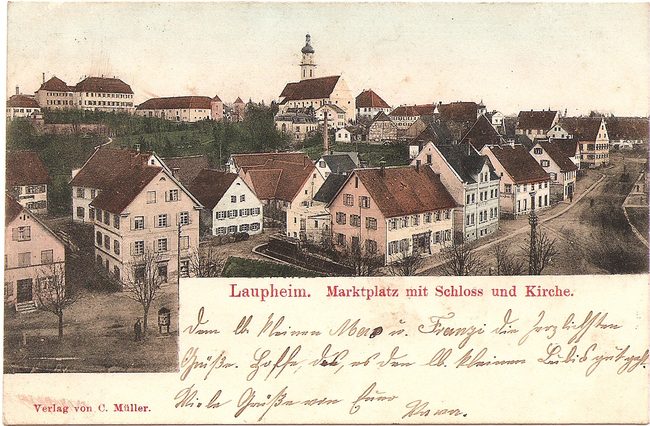 Laupheim. Marktplatz mit Schloss und Kirche.
dem lb. kleinen Max u. Franzi die herzlichsten
Grüße. Hoffe, das, es den lb. kleinen gut geht.
Viele Grüße von Euer
Verlag von C. Müller.